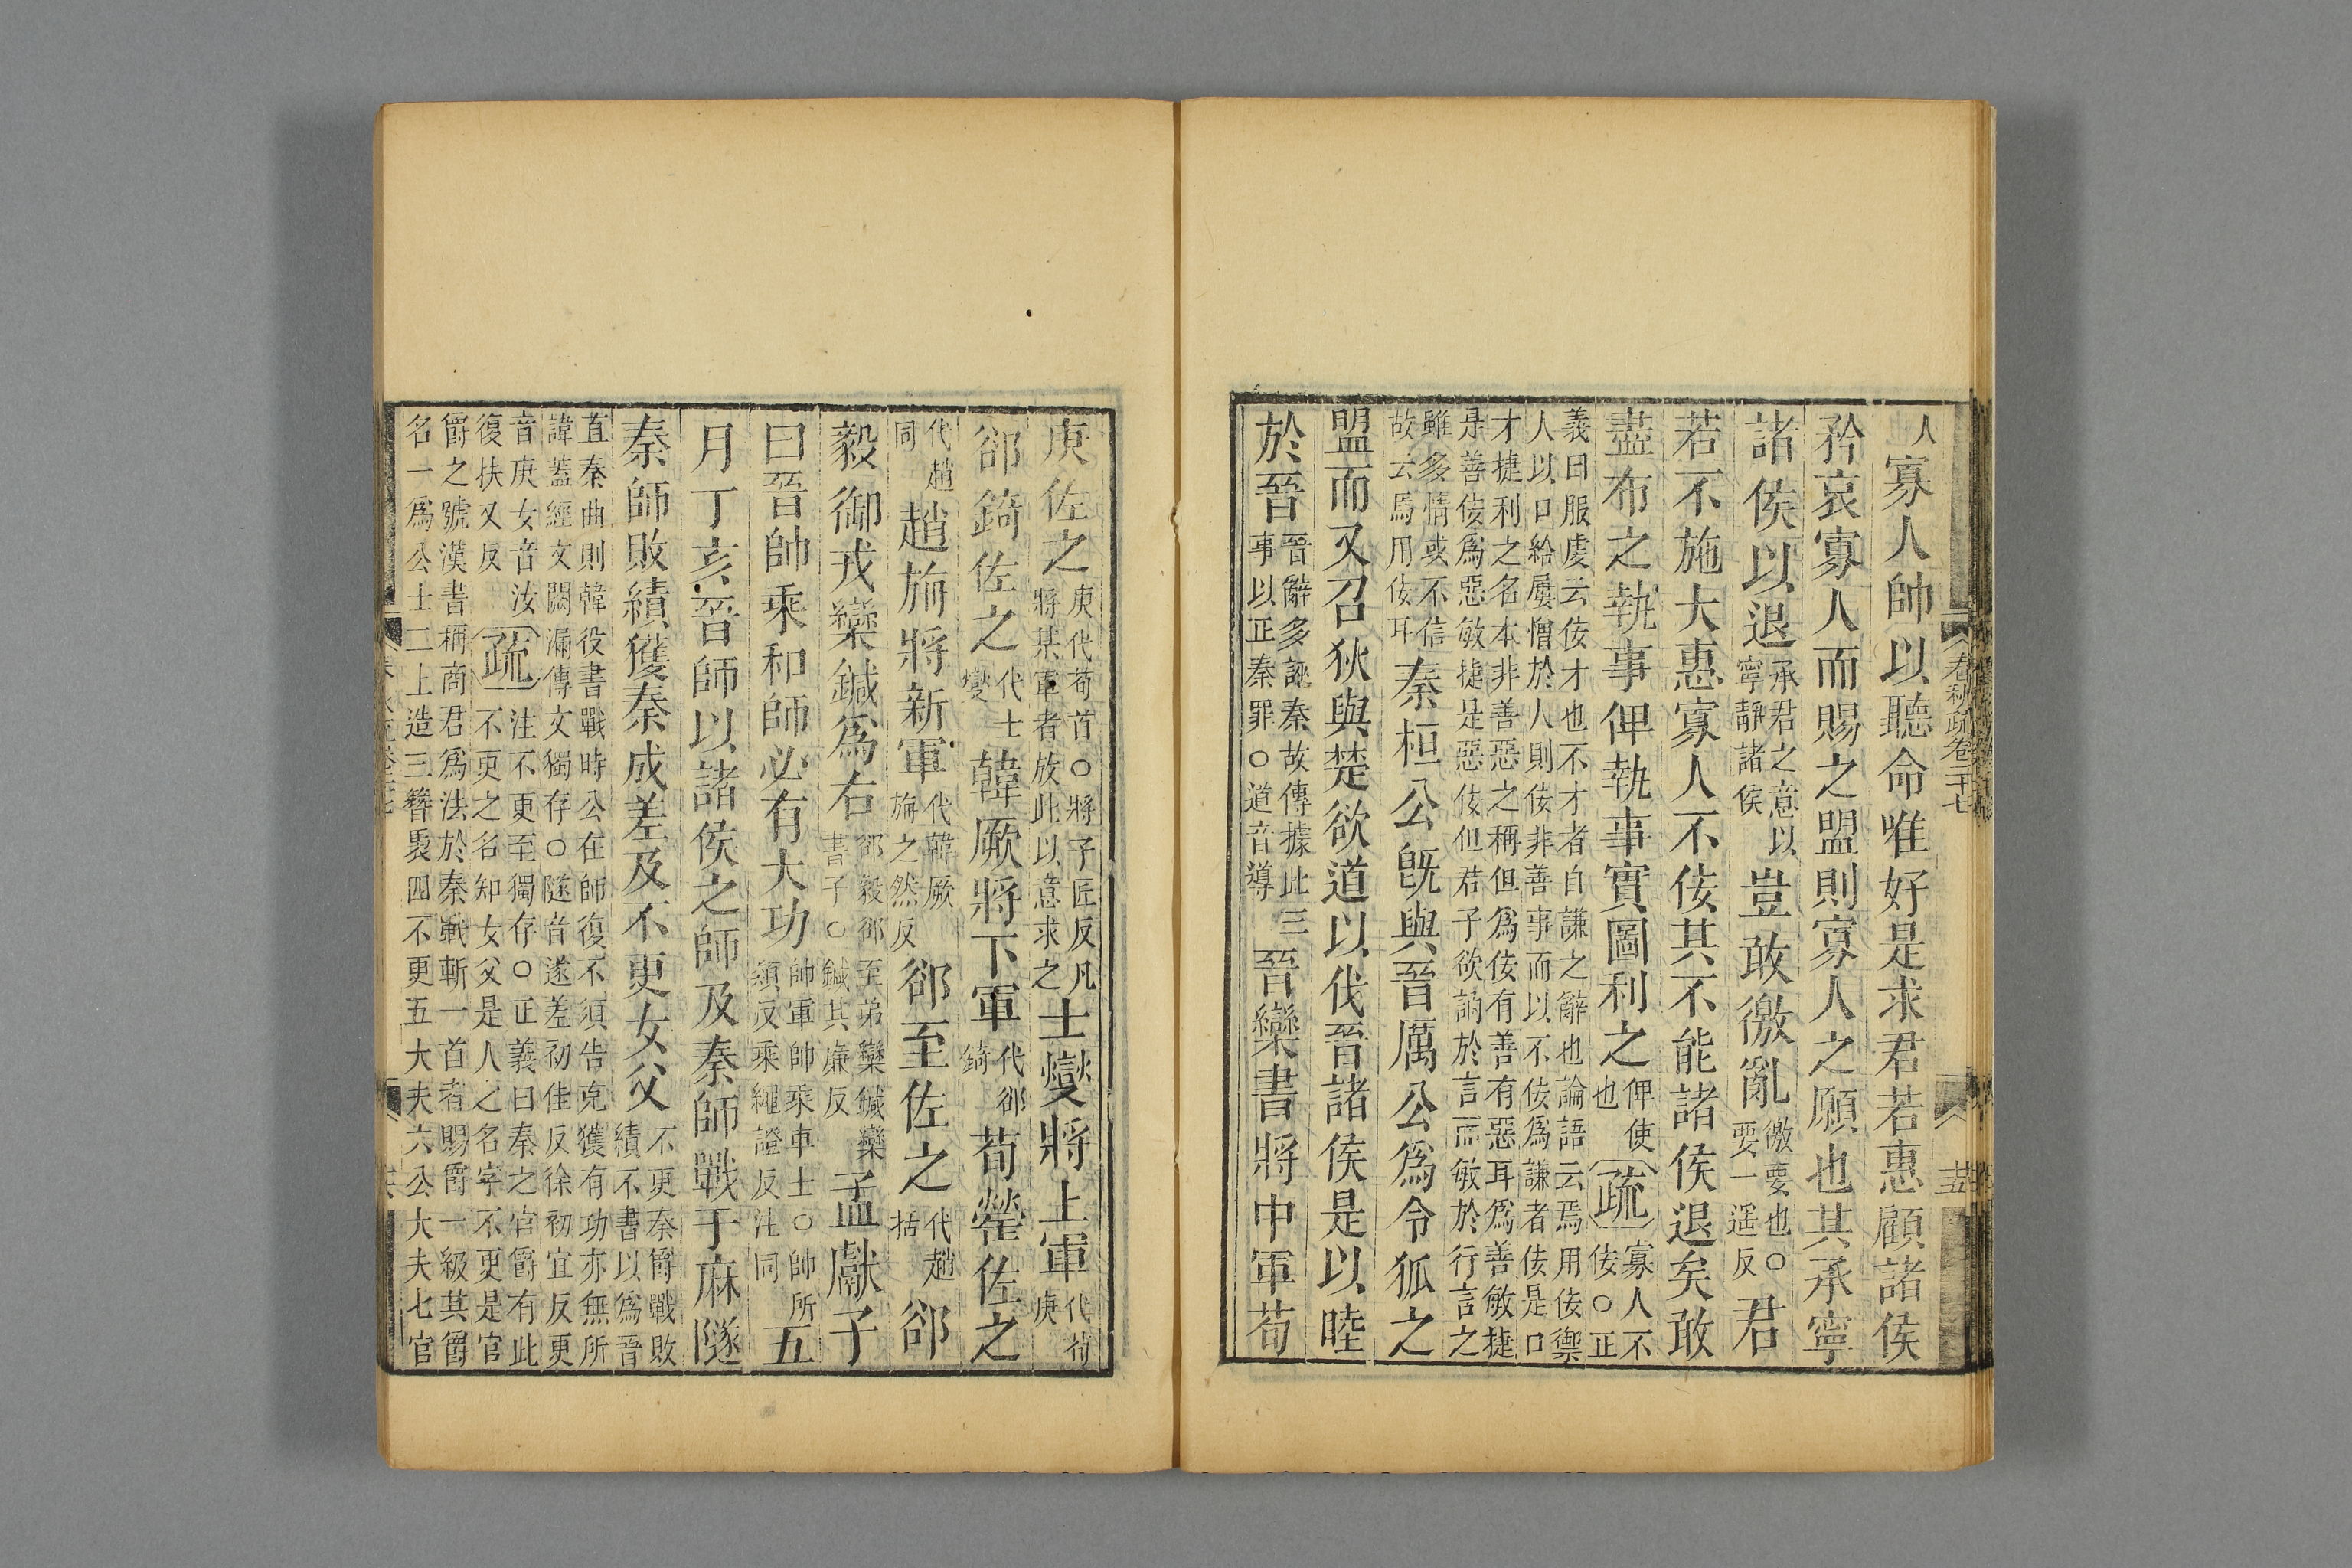 春秋疏卷二十七
十五
人寡人帥以聽命唯好是求君若惠顧諸侯
矜哀寡人而賜之盟則寡人之願也其承寧
諸侯以退承君之意以寧靜諸侯豈敢徼亂徼要也○要一遥反君
若不施大惠寡人不佞其不能諸侯退矣敢
盡布之執事俾執事實圖利之俾使也疏寡人不佞○正
義曰服虔云佞才也不才者自謙之辭也論語云焉用佞禦
人以口給屢憎於人則佞非善事而以不佞爲謙者佞是口
才捷利之名本非善惡之稱但爲佞有善有惡耳爲善敏捷
是善佞爲惡敏捷是惡佞但君子欲訥於言而敏於行言之
雖多情或不信
故云焉用佞耳秦桓公旣與晉厲公爲令狐之
盟而又召狄與楚欲道以伐晉諸侯是以睦
於晉晉辭多誣秦故傳據此三事以正秦罪○道音導晉欒書將中軍荀
庚佐之庚代荀首○將子匠反凡將某軍者放此以意求之士燮將上軍代荀庚
郤錡佐之代士燮韓厥將下軍代郤錡荀罃佐之
代趙同趙旃將新軍代韓厥旃之然反郤至佐之代趙括郤
毅御戎欒鍼爲右郤毅郤至弟欒鍼欒書子○鍼其廉反孟獻子
曰晉帥乘和師必有大功帥軍帥乘車士○帥所類反乘繩證反注同五
月丁亥晉師以諸侯之師及秦師戰于麻隧
秦師敗績獲秦成差及不更女父不更秦爵戰敗績不書以爲晉
直秦曲則韓役書戰時公在師復不須告克獲有功亦無所
諱蓋經文闕漏傳文獨存○隧音遂差初佳反徐初宜反更
音庚女音汝復扶又反疏注不更至獨存○正義曰秦之官爵有此不更之名知女父是人之名字不更是官
爵之號漢書稱商君爲法於秦戰斬一首者賜爵一級其爵
名一爲公士二上造三簪裊四不更五大夫六公大夫七官